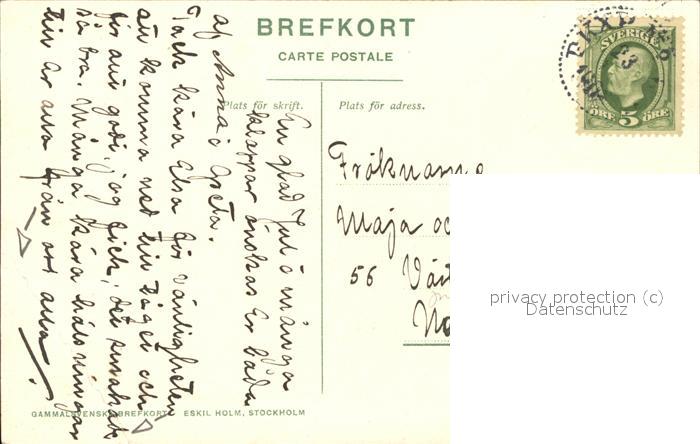 BREFKORT
CARTE POSTALE
Plats för skrift.
Plats för adress.
SVERIGE
ÖRE 5 ÖRE
Fröknarna
Maja oc
56 Väst
No
En glad Jul o många
klappar önskas Er båda
af Anna o Greta.
Tack kära Elsa för vänligheten
att komma ned till tåget och
för allt godt jag fick; det smakade
så bra. Många kära hälsningar
till er alla från oss alla
GAMMALSVENSKA BREFKORT
ESKIL HOLM, STOCKHOLM
privacy protection (c)
Datenschutz